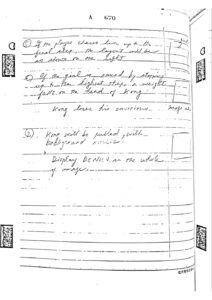 A 670
① If the player chases him up to the
final step, the layout will be
as above on the light
② If the girl is saved by stepping
up to the highest step, a weight
falls on the head of Kong
Kong loses his conscious.
Kong will be pulled with
background
Display BONUS in the whole
of image.